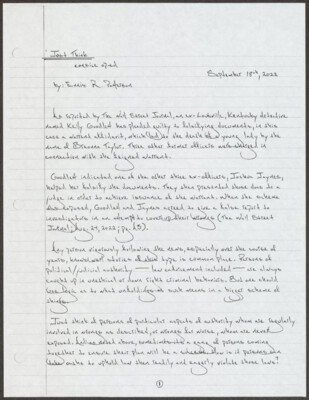 Just Think
creative opined
September 15th, 2022
by: Ennis R. Patterson
As reported by The Wall Street Journal, an ex-Louisville, Kentucky detective
named Kelly Goodlett has pleaded guilty to falsifying documents, in this
case a warrant affidavit, which led to the death of a young lady by the
name of Breonna Taylor. Three other former officers are charged in
connection with the feigned warrant.
Goodlett indicated one of the other three ex-officers, Joshua Jaynes,
helped her falsify the documents. They then presented those docs to a
judge in order to achieve issuance of the warrant. When the scheme
was exposed, Goodlett and Jaynes agreed to give a false report to
investigators in an attempt to cover up their lies (The Wall Street
Journal, Aug. 24, 2022; pg. A3).
Any person vigorously following the news, especially over the course of
years, knows such stories of this type is common place. Persons of
political/judicial authority — law enforcement included — are always
caught up in unethical or down right criminal behaviors. But one should
as to what unfolding such means in a bigger scheme of
things.
Just think of persons of particular aspects of authority whom are regularly
involved in wrongs as described, or wrongs far worse, whom are never
exposed. a gang of persons coming
together to ensure their plan will be a in it persons
oaths to uphold laws then tacitly and eagerly violate those laws!
1